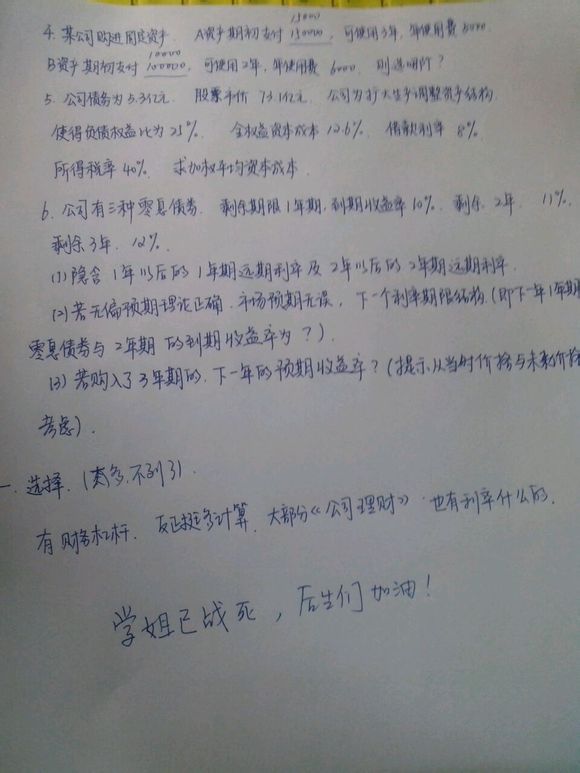 4. 某公司购进固定资产. A资产期初支付 15000 150000, 可使用3年, 年使用费 5000.
B资产期初支付 10000 100000, 可使用2年, 年使用费 6000. 则选哪个?
5. 公司债务为5.3亿元. 股票市价 73.1亿元. 公司为扩大生产调整资产结构.
使得负债权益比为25%. 全权益资本成本 12.6%. 借款利率 8%.
所得税率 40%. 求加权平均资本成本.
6. 公司有三种零息债券. 剩余期限1年期, 到期收益率10%. 剩余2年. 11%.
剩余3年. 12%.
(1) 隐含1年以后的1年期远期利率及2年以后的2年期远期利率.
(2) 若无偏预期理论正确. 市场预期无误, 下一个利率期限结构. (即下一年1年期
零息债券与2年期的到期收益率为?).
(3) 若购入了3年期的. 下一年的预期收益率? (提示从当时价格与未来价格
考虑).
一. 选择. (太多, 不列了).
有财务杠杆. 反正挺多计算. 大部分《公司理财》. 也有利率什么的.
学姐已战死, 后生们加油!